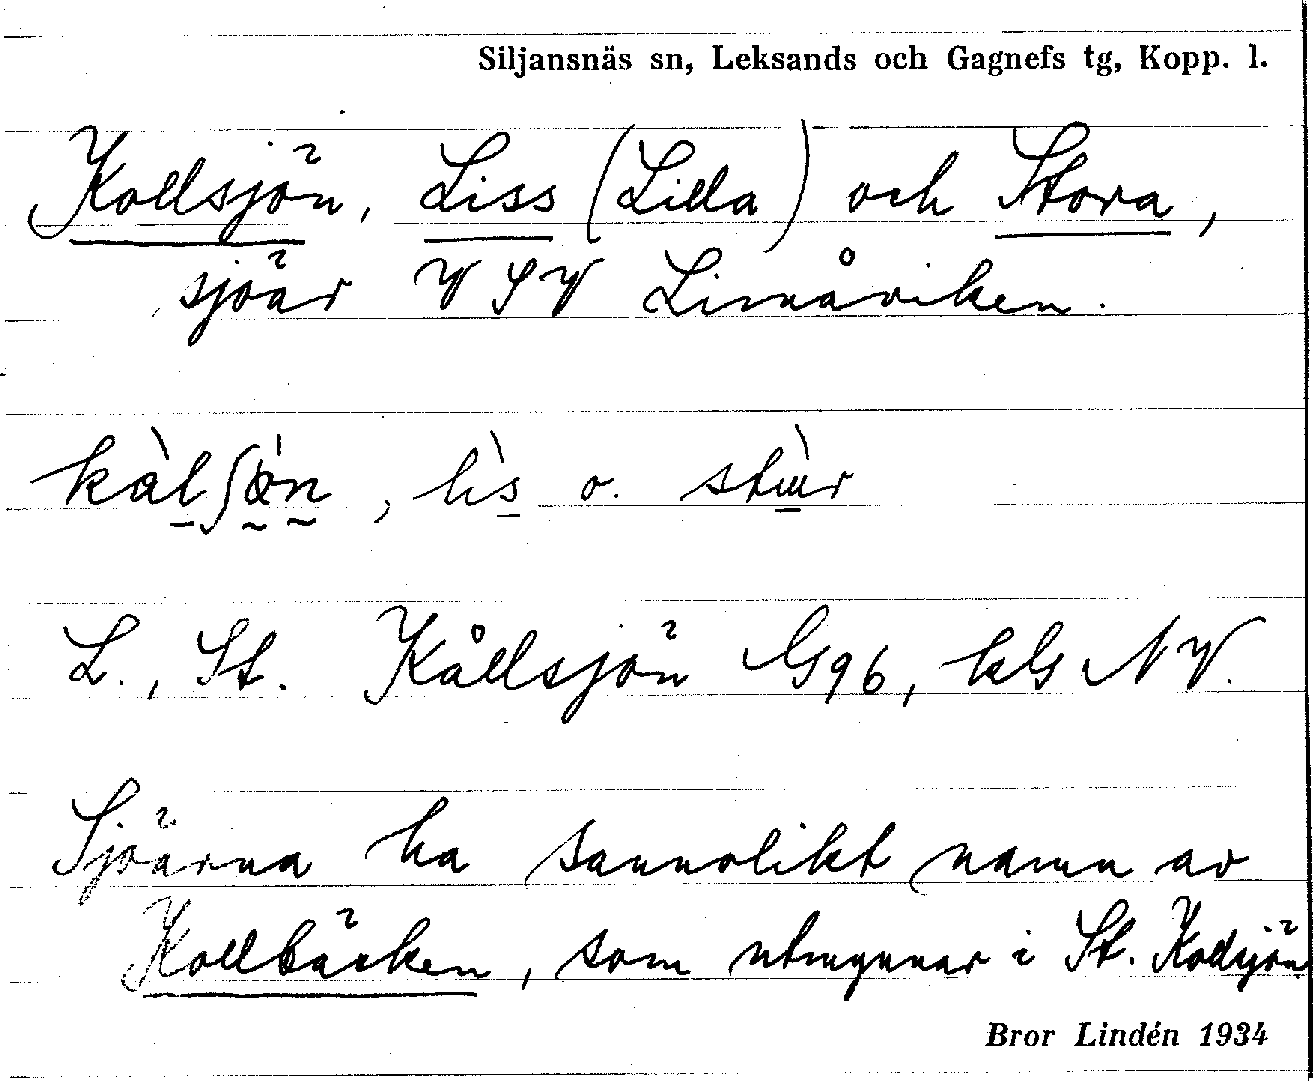 Siljansnäs sn, Leksands och Gagnefs tg, Kopp. l.
Kollsjön, Liss (Lilla) och Stora,
sjöar V S V Limåviken.
kàlʃön, lìs o. stùr
L., St. Kållsjön G96, kG NV.
Sjöarna ha sannolikt namn av
Kollbäcken, som utmynnar i St. Kollsjön
Bror Lindén 1934